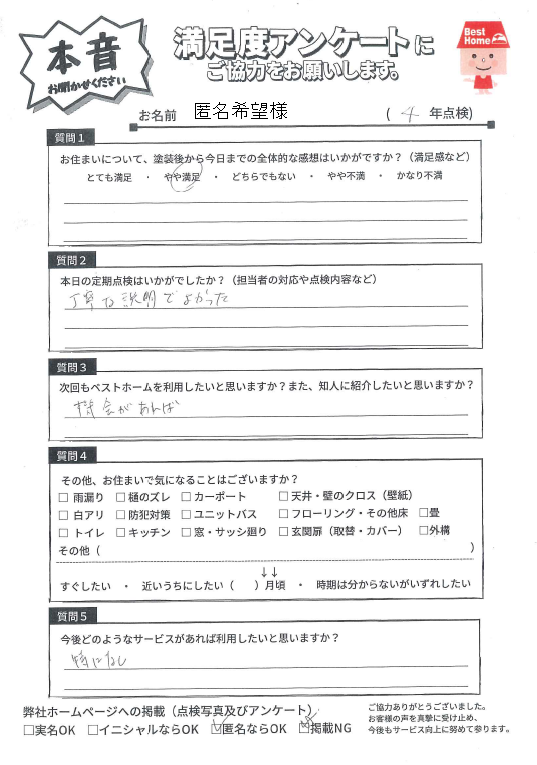 本音
お聞かせください
満足度アンケートに
ご協力をお願いします。
Best Home
お名前 匿名希望様 ( 4 年点検)
質問1
お住まいについて、塗装後から今日までの全体的な感想はいかがですか?(満足感など)
とても満足 ・ やや満足 ・ どちらでもない ・ やや不満 ・ かなり不満
質問2
本日の定期点検はいかがでしたか?(担当者の対応や点検内容など)
丁寧な説明でよかった
質問3
次回もベストホームを利用したいと思いますか?また、知人に紹介したいと思いますか?
機会があれば
質問4
その他、お住まいで気になることはございますか?
□ 雨漏り □ 樋のズレ □ カーポート □ 天井・壁のクロス(壁紙)
□ 白アリ □ 防犯対策 □ ユニットバス □ フローリング・その他床 □畳
□ トイレ □ キッチン □ 窓・サッシ廻り □ 玄関扉(取替・カバー) □外構
その他( )
↓↓
すぐしたい ・ 近いうちにしたい( )月頃 ・ 時期は分からないがいずれしたい
質問5
今後どのようなサービスがあれば利用したいと思いますか?
特になし
弊社ホームページへの掲載(点検写真及びアンケート)
□実名OK □イニシャルならOK ☑匿名ならOK ☑掲載NG
ご協力ありがとうございました。
お客様の声を真摯に受け止め、
今後もサービス向上に努めて参ります。